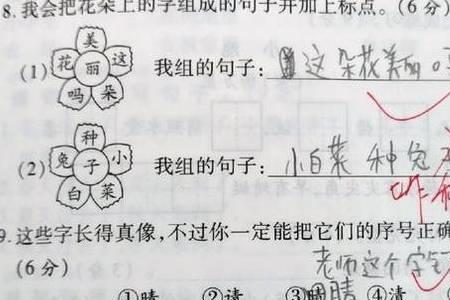 8.我会把花朵上的字组成的句子并加上标点。(6分)
美
花 丽 这
吗 朵
(1) 我组的句子:这朵花美丽吗
种
兔 子 小
白 菜
(2) 我组的句子:小白菜种兔子
9.这些字长得真像,不过你一定能把它们的序号正确
(6分) 老师这个字
①睛 ②请 ③晴 ④清